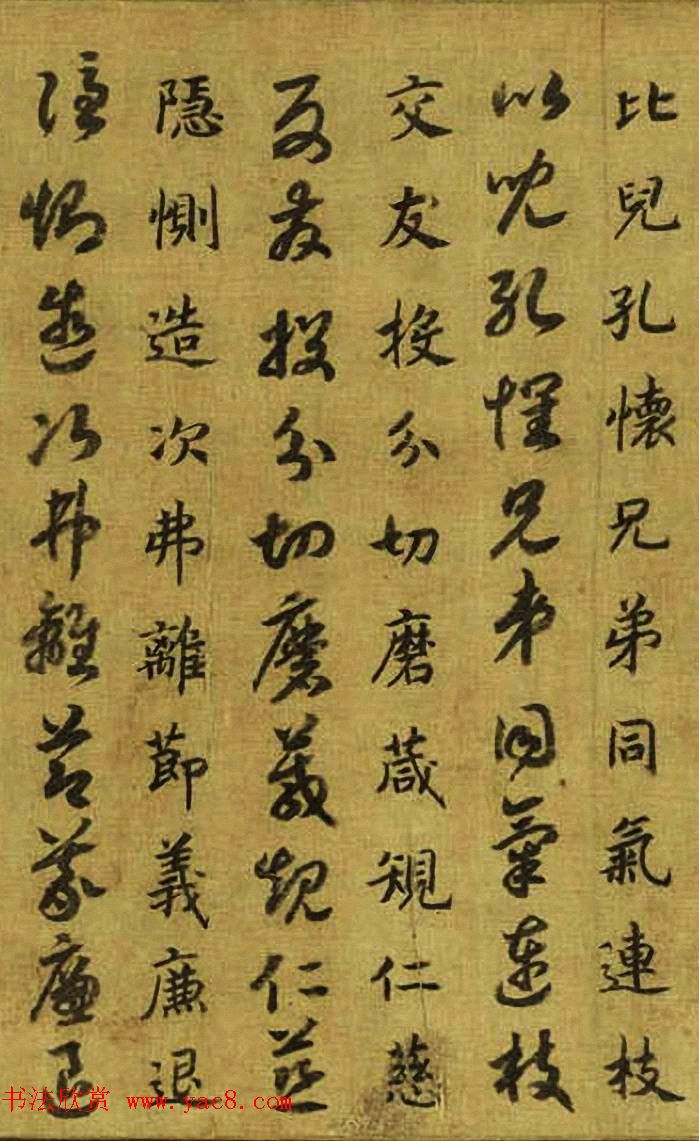 比兒孔懷兄弟同氣連枝
比兒孔懷兄弟同氣連枝
交友投分切磨箴規仁慈
交友投分切磨箴規仁慈
隱惻造次弗離節義廉退
隱惻造次弗離節義廉退
书法欣赏 www.yac8.com